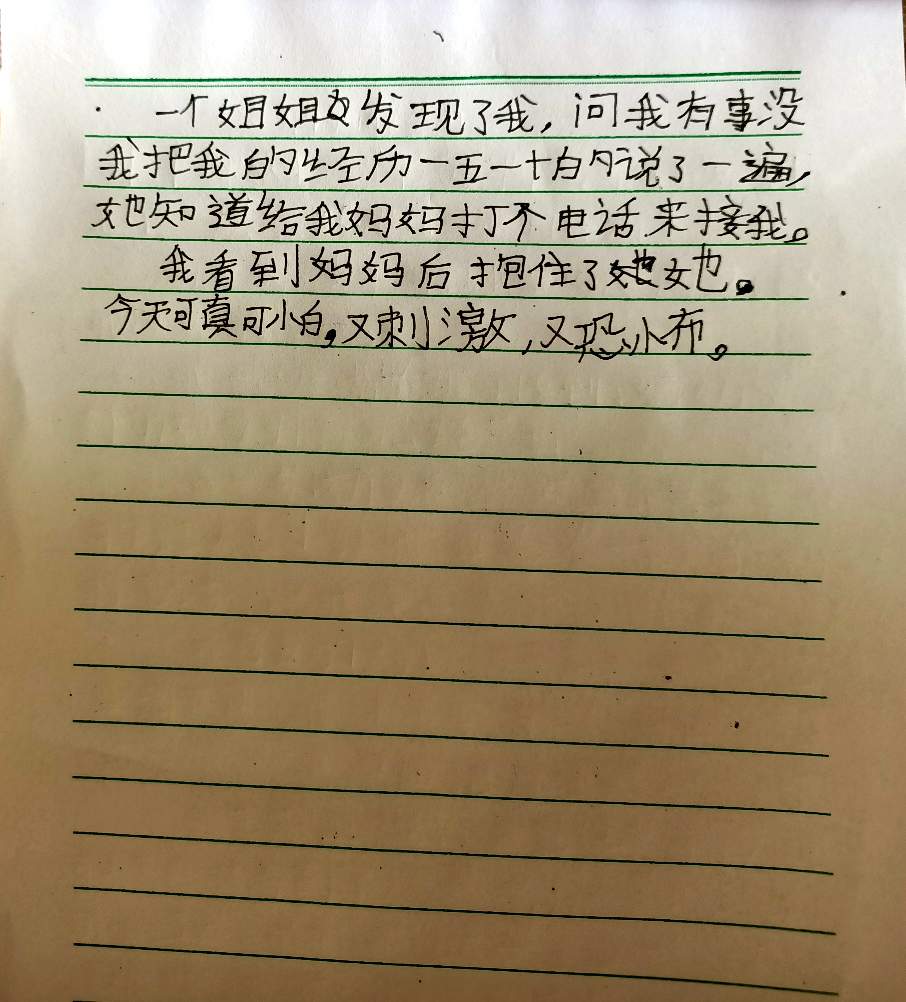 一个姐姐发现了我，问我有事没
我把我的经历一五一十的说了一遍，
她知道给我妈妈打个电话来接我。
我看到妈妈后抱住了她。
今天可真可怕。又刺激，又恐怖。